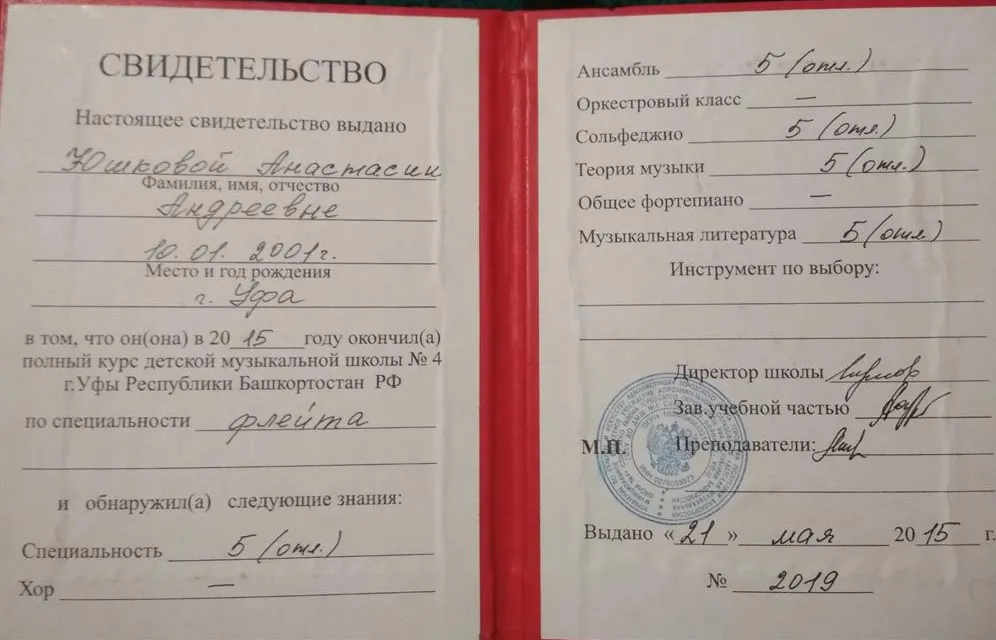 СВИДЕТЕЛЬСТВО
Настоящее свидетельство выдано
Юшковой Анастасии
Фамилия, имя, отчество
Андреевне
10.01. 2001г.
Место и год рождения
г. Уфа
в том, что он(она) в 2015 году окончил(а)
полный курс детской музыкальной школы № 4
г.Уфы Республики Башкортостан РФ
по специальности флейта
и обнаружил(а) следующие знания:
Специальность 5 (отл.)
Хор —
Ансамбль 5 (отл.)
Оркестровый класс —
Сольфеджио 5 (отл.)
Теория музыки 5 (отл.)
Общее фортепиано —
Музыкальная литература 5 (отл)
Инструмент по выбору:
Директор школы
Зав.учебной частью
М.П. Преподаватели:
Выдано «21» мая 2015 г.
№ 2019